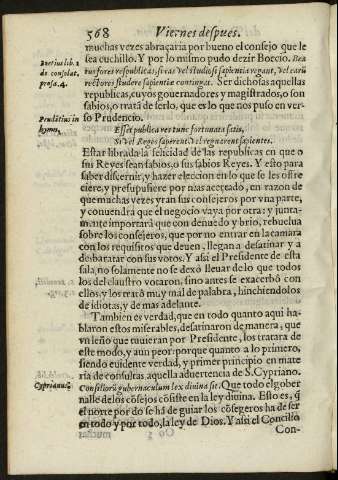 568
Viernes despues.
muchas vezes abraçaria por bueno el consejo que le
sea cuchillo. Y por lo mismo pudo dezir Boecio. Bea
tus fores respublicas, si eas vel studiosi sapientia regant, vel earũ
rectores studere sapientiæ contingat. Ser dichosas aquellas
republicas, cuyos governadores y magistrados, o son
sabios, o tratã de serlo, que es lo que nos puso en ver-
so Prudencio.
Boetius lib. 1
de consolat.
prosa. 4.
Prudẽtius in
hymn.
Esset publica res tunc fortunata satis,
Si vel Reges saperent, vel regnarent sapientes.
Estar librada la felicidad de las republicas en que o
sus Reyes sean sabios, o sus sabios Reyes. Y esto para
saber discernir, y hazer eleccion en lo que se les ofre
ciere, y presupusiere por mas aceptado, en razon de
que muchas vezes yran sus consejeros por vna parte,
y conuendrà que el negocio vaya por otra: y junta-
mente importarà que con denuedo y brio, rebuelua
sobre los consejeros, que por no entrar en la camara
con los requisitos que deuen, llegan a desatinar y a
desbaratar con sus votos. Y assi el Presidente de esta
sala, no solamente no se dexò llevar de lo que todos
los del claustro votaron, sino antes se exacerbò con
ellos, y los tratò muy mal de palabra, hinchiendolos
de idiotas, y de mas adelante.
Tambien es verdad, que en todo quanto aqui ha-
blaron estos miserables, desatinaron de manera, que
vn leño que tuuieran por Presidente, los tratara de
este modo, y aun peor: porque quanto a lo primero,
siendo euidente verdad, y primer principio en mate
ria de consultas, aquella aduertencia de S. Cypriano.
Cyprianus.
Consiliorũ gubernaculum lex diuina sit. Que todo el gober
nalle de los cõsejos cõsiste en la ley diuina. Esto es, q̃
el norte por do se hã de guiar los cõsegeros ha de ser
en todo y por todo, la ley de Dios. Y assi el Concilio
Con-